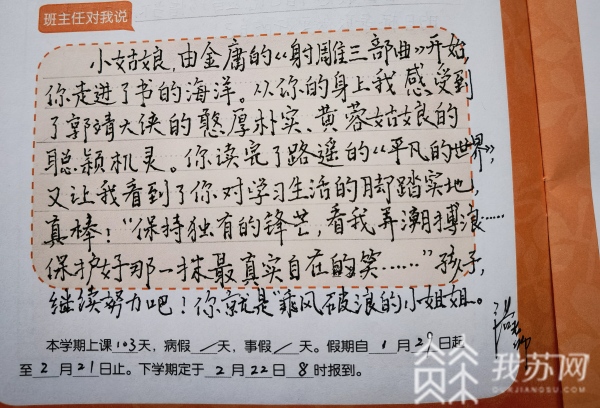 班主任对我说
小姑娘,由金庸的《射雕三部曲》开始,
你走进了书的海洋。从你的身上我感受到
了郭靖大侠的憨厚朴实、黄蓉姑娘的
聪颖机灵。你读完了路遥的《平凡的世界》,
又让我看到了你对学习生活的脚踏实地,
真棒!“保持独有的锋芒,看我弄潮搏浪……
保护好那一抹最真实自在的笑……”孩子,
继续努力吧!你就是“乘风破浪的小姐姐。
本学期上课103天,病假/天,事假/天。假期自1月29日起
至2月21日止。下学期定于2月22日8时报到。
我苏网
OURJIANGSU.COM